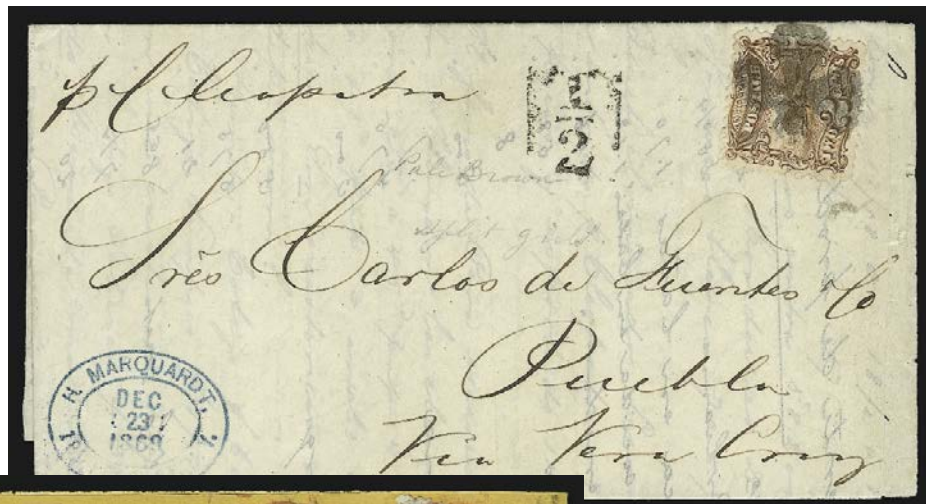 p Cleopatra
1/2
Pale Brown
split grill
Sres Carlos de Fuentes Co
Puebla
Via Vera Cruz
H. MARQUARDT,
DEC
23
1869